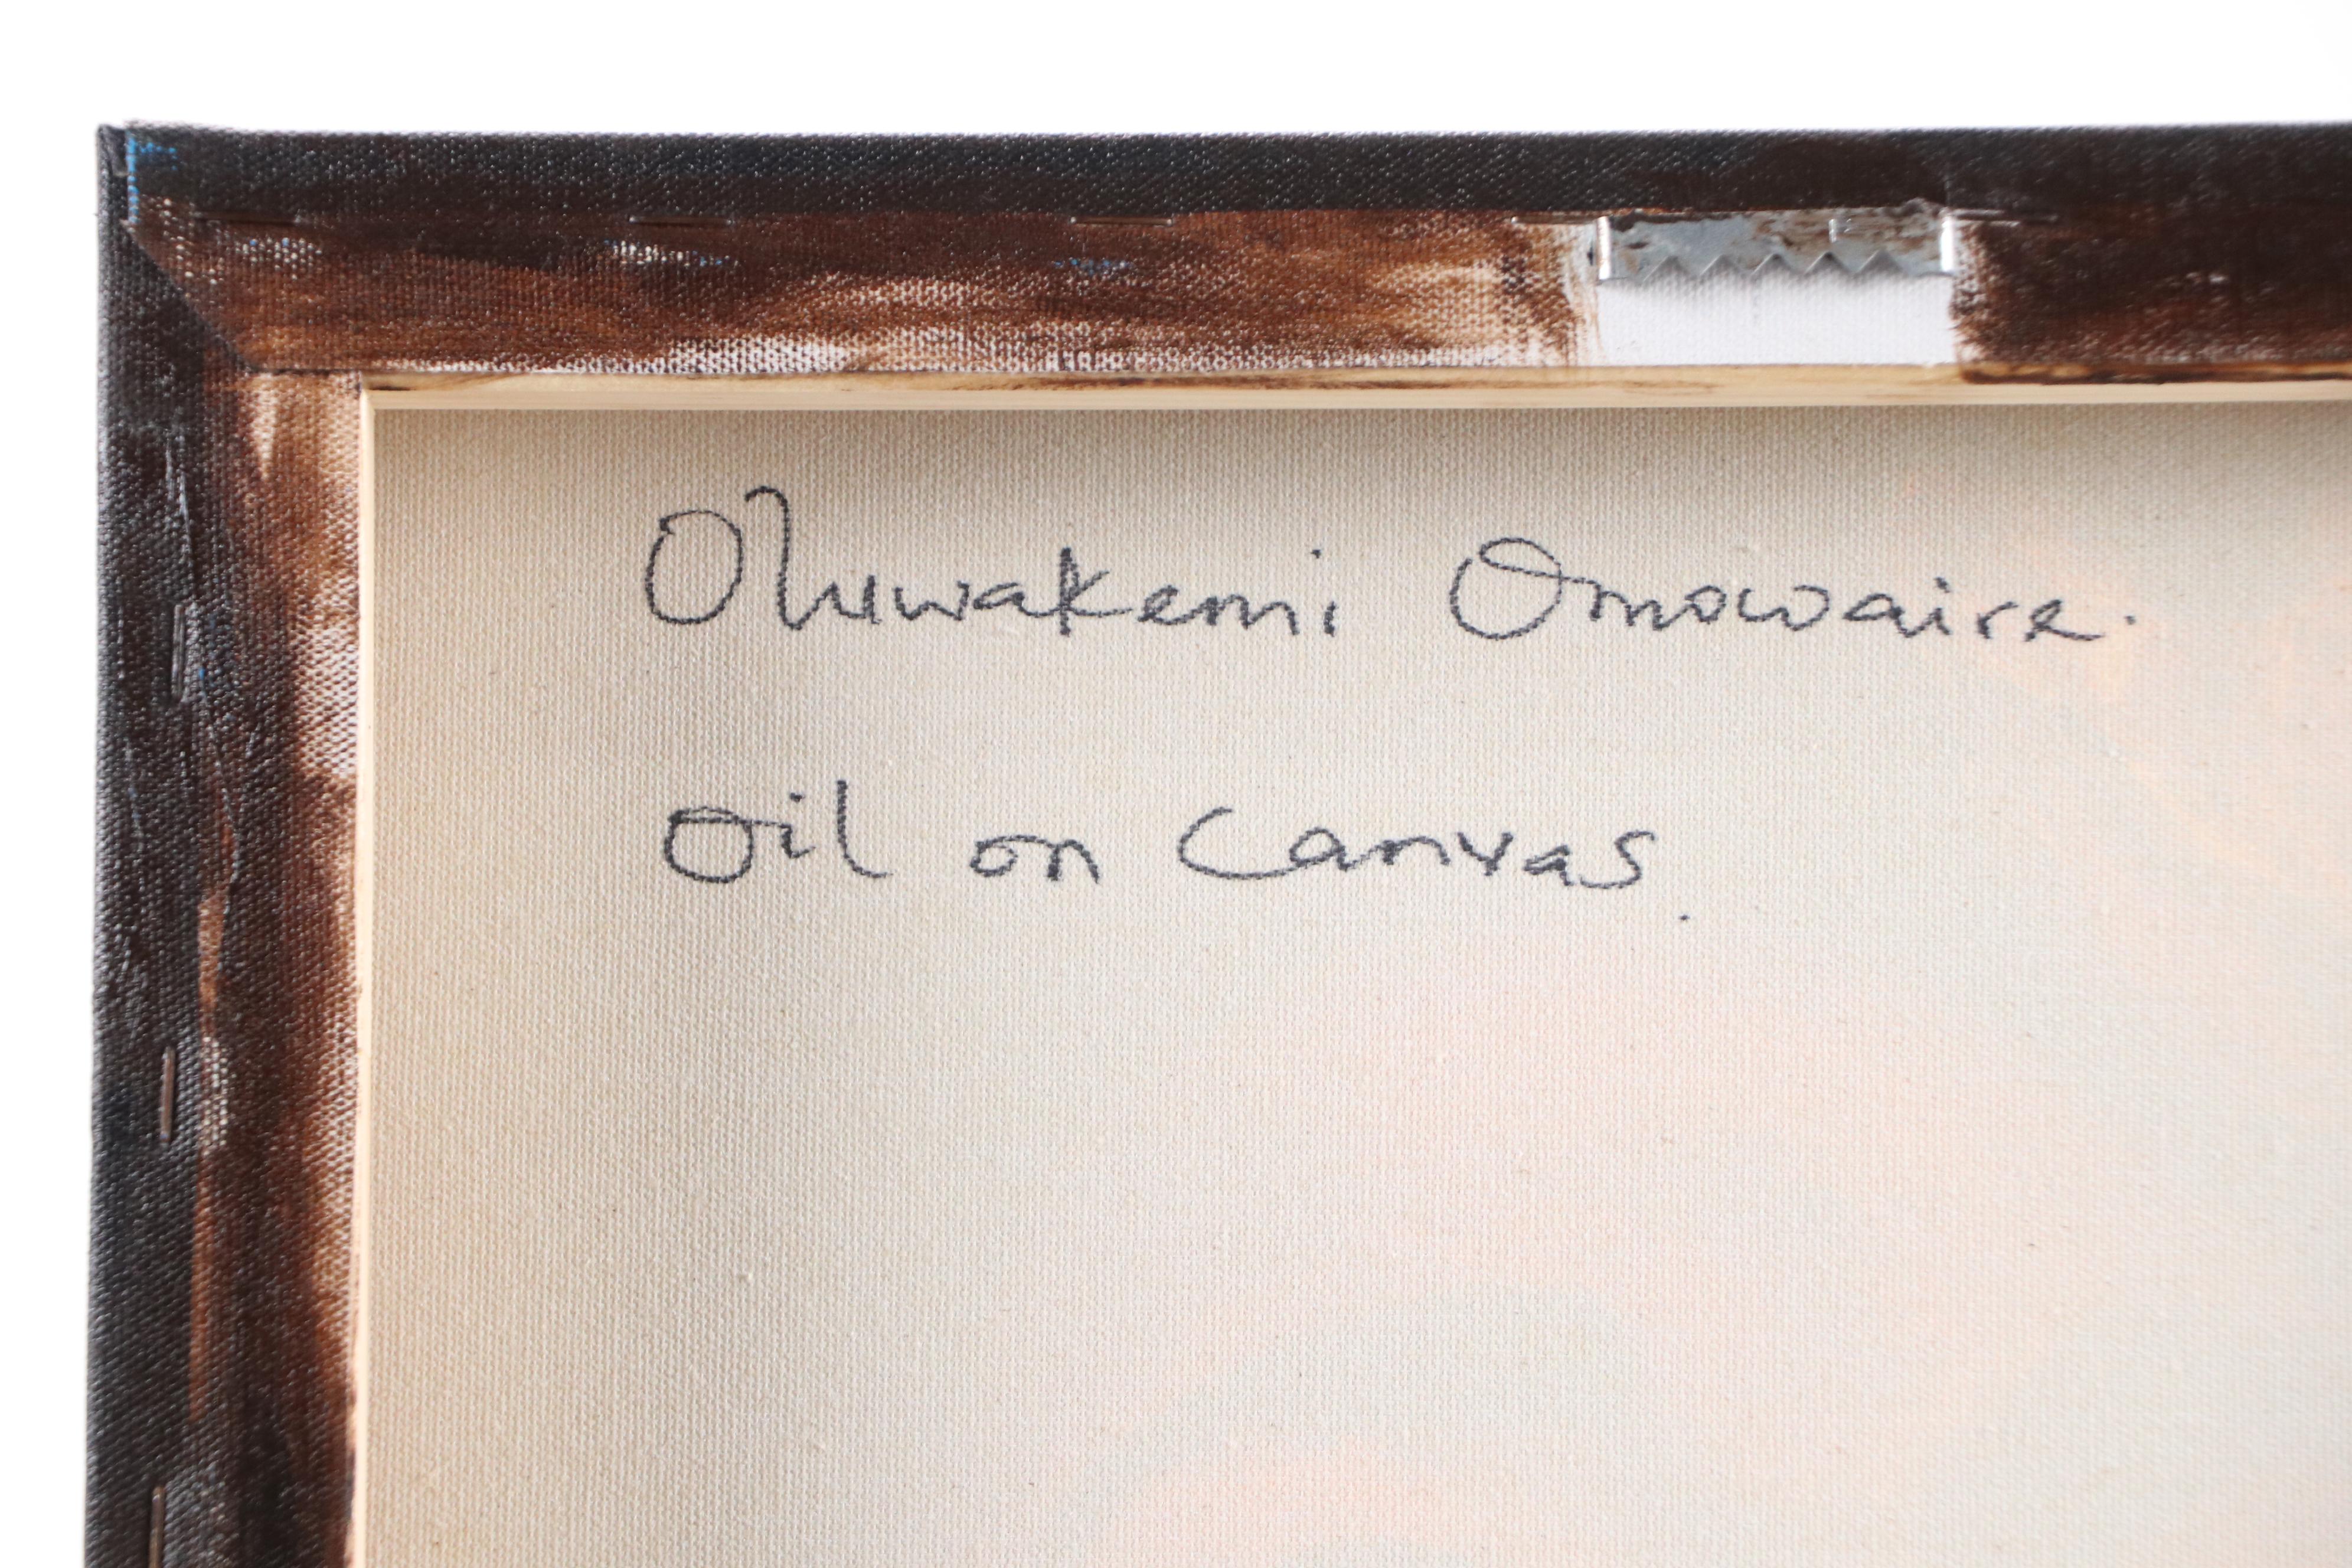 Oluwakemi Omowaire.
Oil on Canvas.